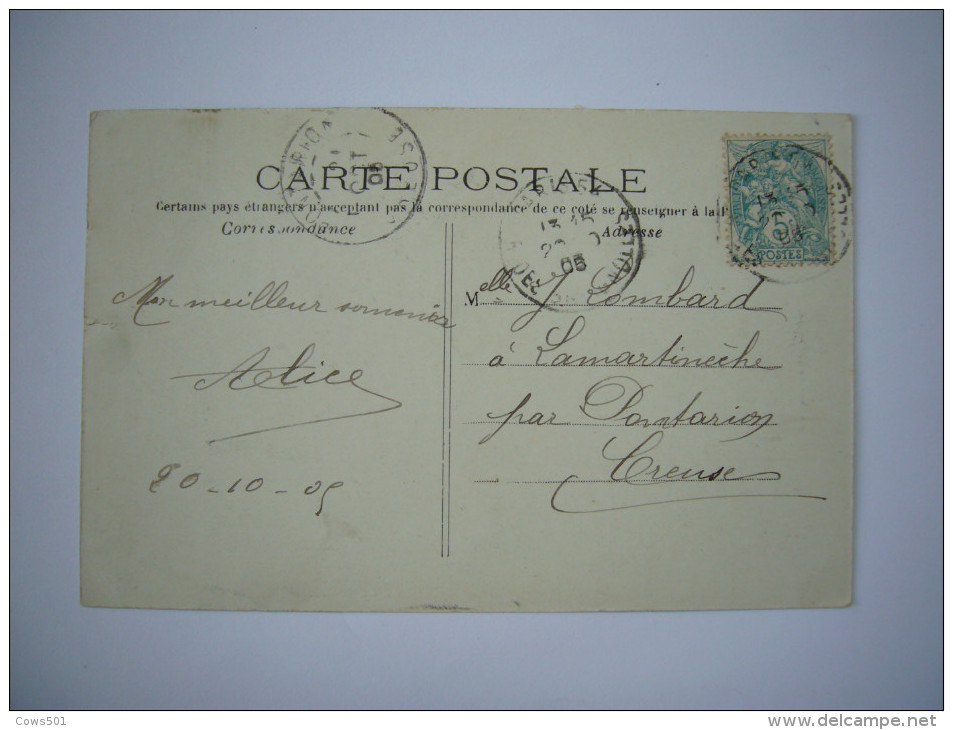 CARTE POSTALE
Certains pays étrangers n'acceptent pas la correspondance de ce coté se renseigner à la
Correspondance
Adresse
Mon meilleur souvenir
Alice
20-10-05
Melle J Lombard
à Lamartinèche
par Pontarion
Creuse
POSTES
05
05
CREUSE
Cows501
www.delcampe.net